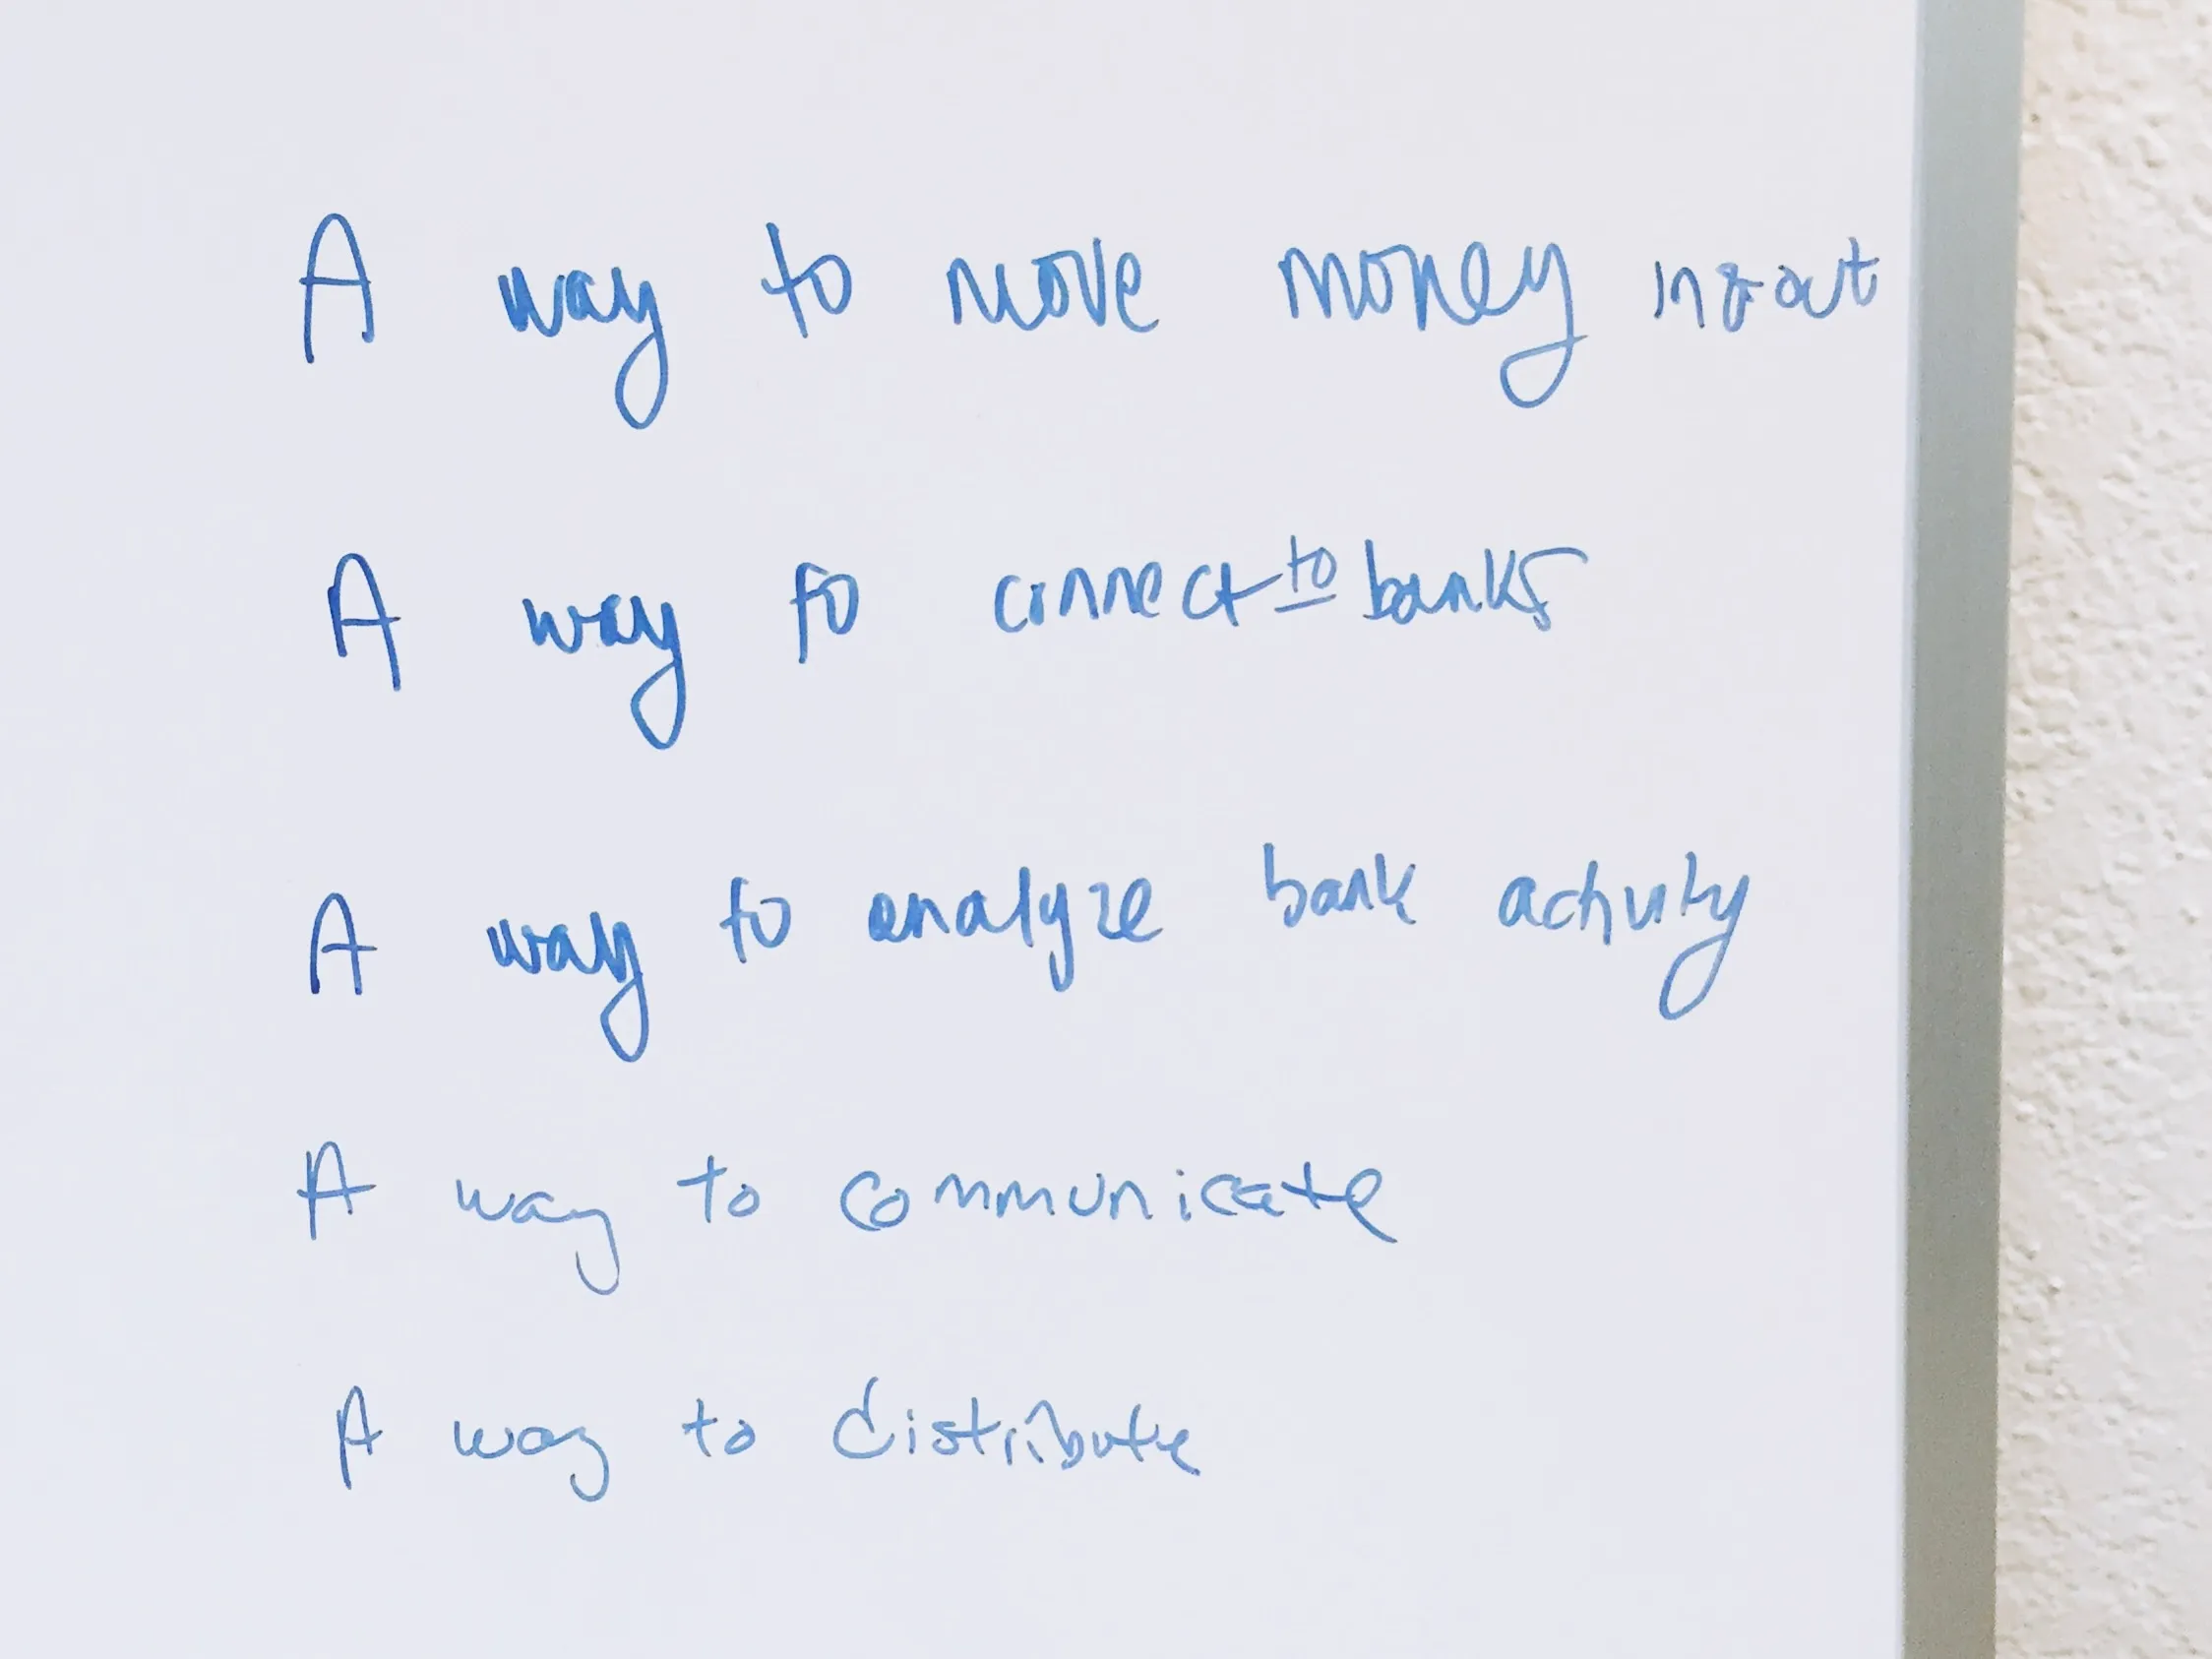 A way to move money in & out
A way to connect to banks
A way to analyze bank activity
A way to communicate
A way to distribute